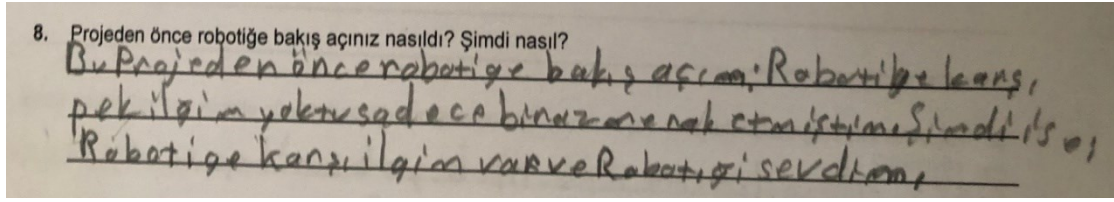 8. Projeden önce robotiğe bakış açınız nasıldı? Şimdi nasıl?
Bu Projeden önce robotige bakış açım: Robotiğe karşı
pek ilgim yoktu sadece biraz merak etmiştim. Şimdi ise;
Robotige karşı ilgim var ve Robotiği sevdim.